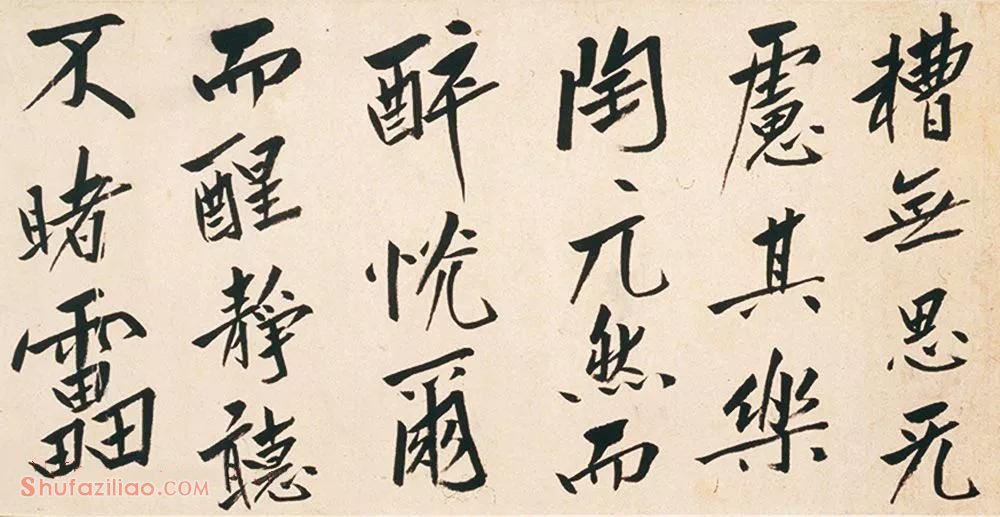 槽無思无
慮其樂
陶、兀然而
醉恍爾
而醒靜聽
不睹靁
Shufaziliao.COM